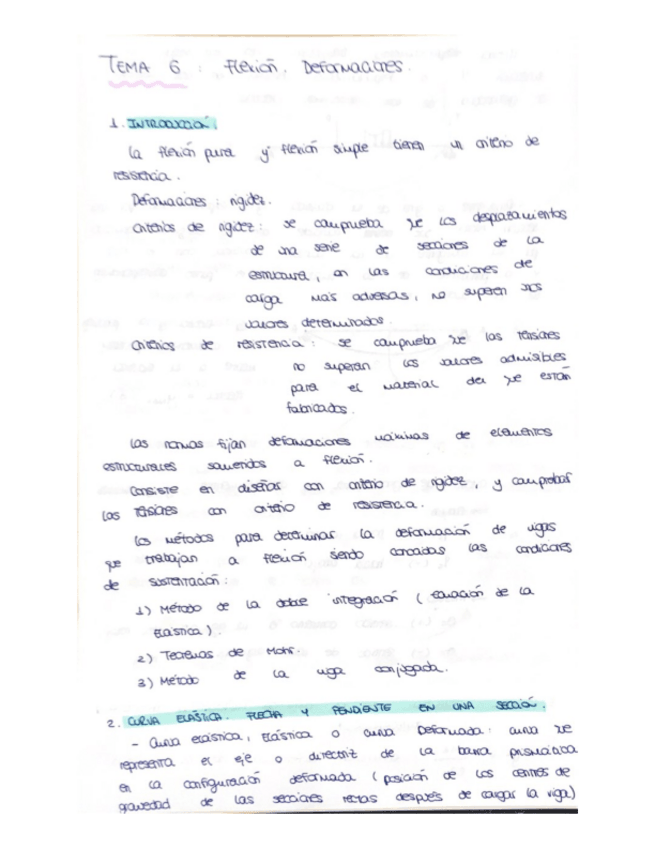 TEMA 6 : Flexión. Deformaciones.
1. INTRODUCCIÓN.
La flexión pura y flexión simple tienen un criterio de
resistencia.
Deformaciones : rigidez.
Criterios de rigidez : se comprueba que los desplazamientos
de una serie de secciones de la
estructura, en las condiciones de
carga más adversas, no superen unos
valores determinados.
Criterios de resistencia : se comprueba que las tensiones
no superan los valores admisibles
para el material del que están
fabricados.
Las normas fijan deformaciones máximas de elementos
estructurales sometidos a flexión.
Consiste en diseñar con criterio de rigidez, y comprobar
las tensiones con criterio de resistencia.
Los métodos para determinar la deformación de vigas
que trabajan a flexión siendo conocidas las condiciones
de sustentación :
1) Método de la doble integración (ecuación de la
elástica).
2) Teoremas de Mohr.
3) Método de la viga conjugada.
2. CURVA ELÁSTICA. FLECHA Y PENDIENTE EN UNA SECCIÓN.
- Curva elástica, elástica o curva deformada : curva que
representa el eje o directriz de la barra prismática
en la configuración deformada (posición de los centros de
gravedad de las secciones rectas después de cargar la viga)